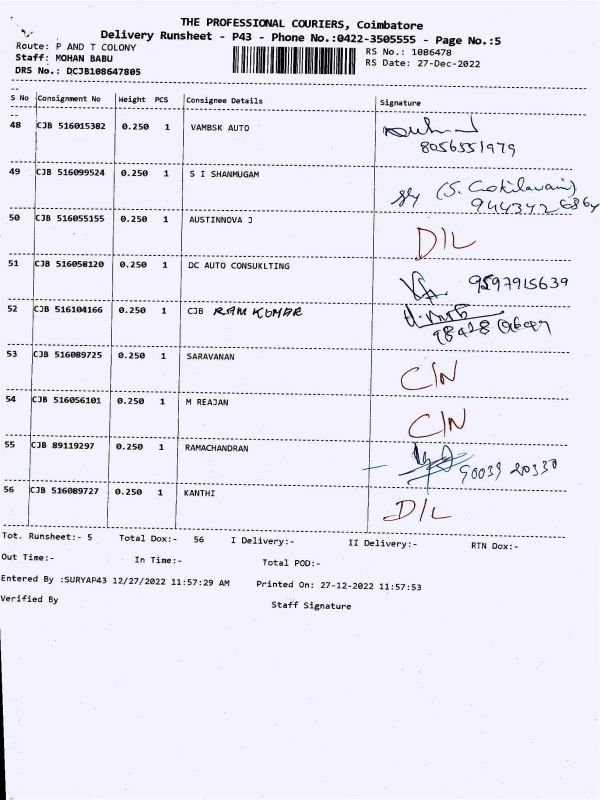 THE PROFESSIONAL COURIERS, Coimbatore
Delivery Runsheet - P43 - Phone No.:0422-3505555 - Page No.:5
Route: P AND T COLONY
RS No.: 1086478
Staff: MOHAN BABU
RS Date: 27-Dec-2022
DRS No.: DCJB108647805
S No Consignment No Weight PCS Consignee Details Signature
48 CJB 516015382 0.250 1 VAMBSK AUTO
8056551979
49 CJB 516099524 0.250 1 S I SHANMUGAM
(S. Gokilavani)
50 CJB 516055155 0.250 1 AUSTINNOVA J
D/L
51 CJB 516058120 0.250 1 DC AUTO CONSUKLTING
9597915639
52 CJB 516104166 0.250 1 CJB RAM KUMAR
53 CJB 516089725 0.250 1 SARAVANAN
C/N
54 CJB 516056101 0.250 1 M REAJAN
C/N
55 CJB 89119297 0.250 1 RAMACHANDRAN
90039 20330
56 CJB 516089727 0.250 1 KANTHI
D/L
Tot. Runsheet:- 5 Total Dox:- 56 I Delivery:- II Delivery:- RTN Dox:-
Out Time:- In Time:- Total POD:-
Entered By :SURYAP43 12/27/2022 11:57:29 AM Printed On: 27-12-2022 11:57:53
Verified By Staff Signature